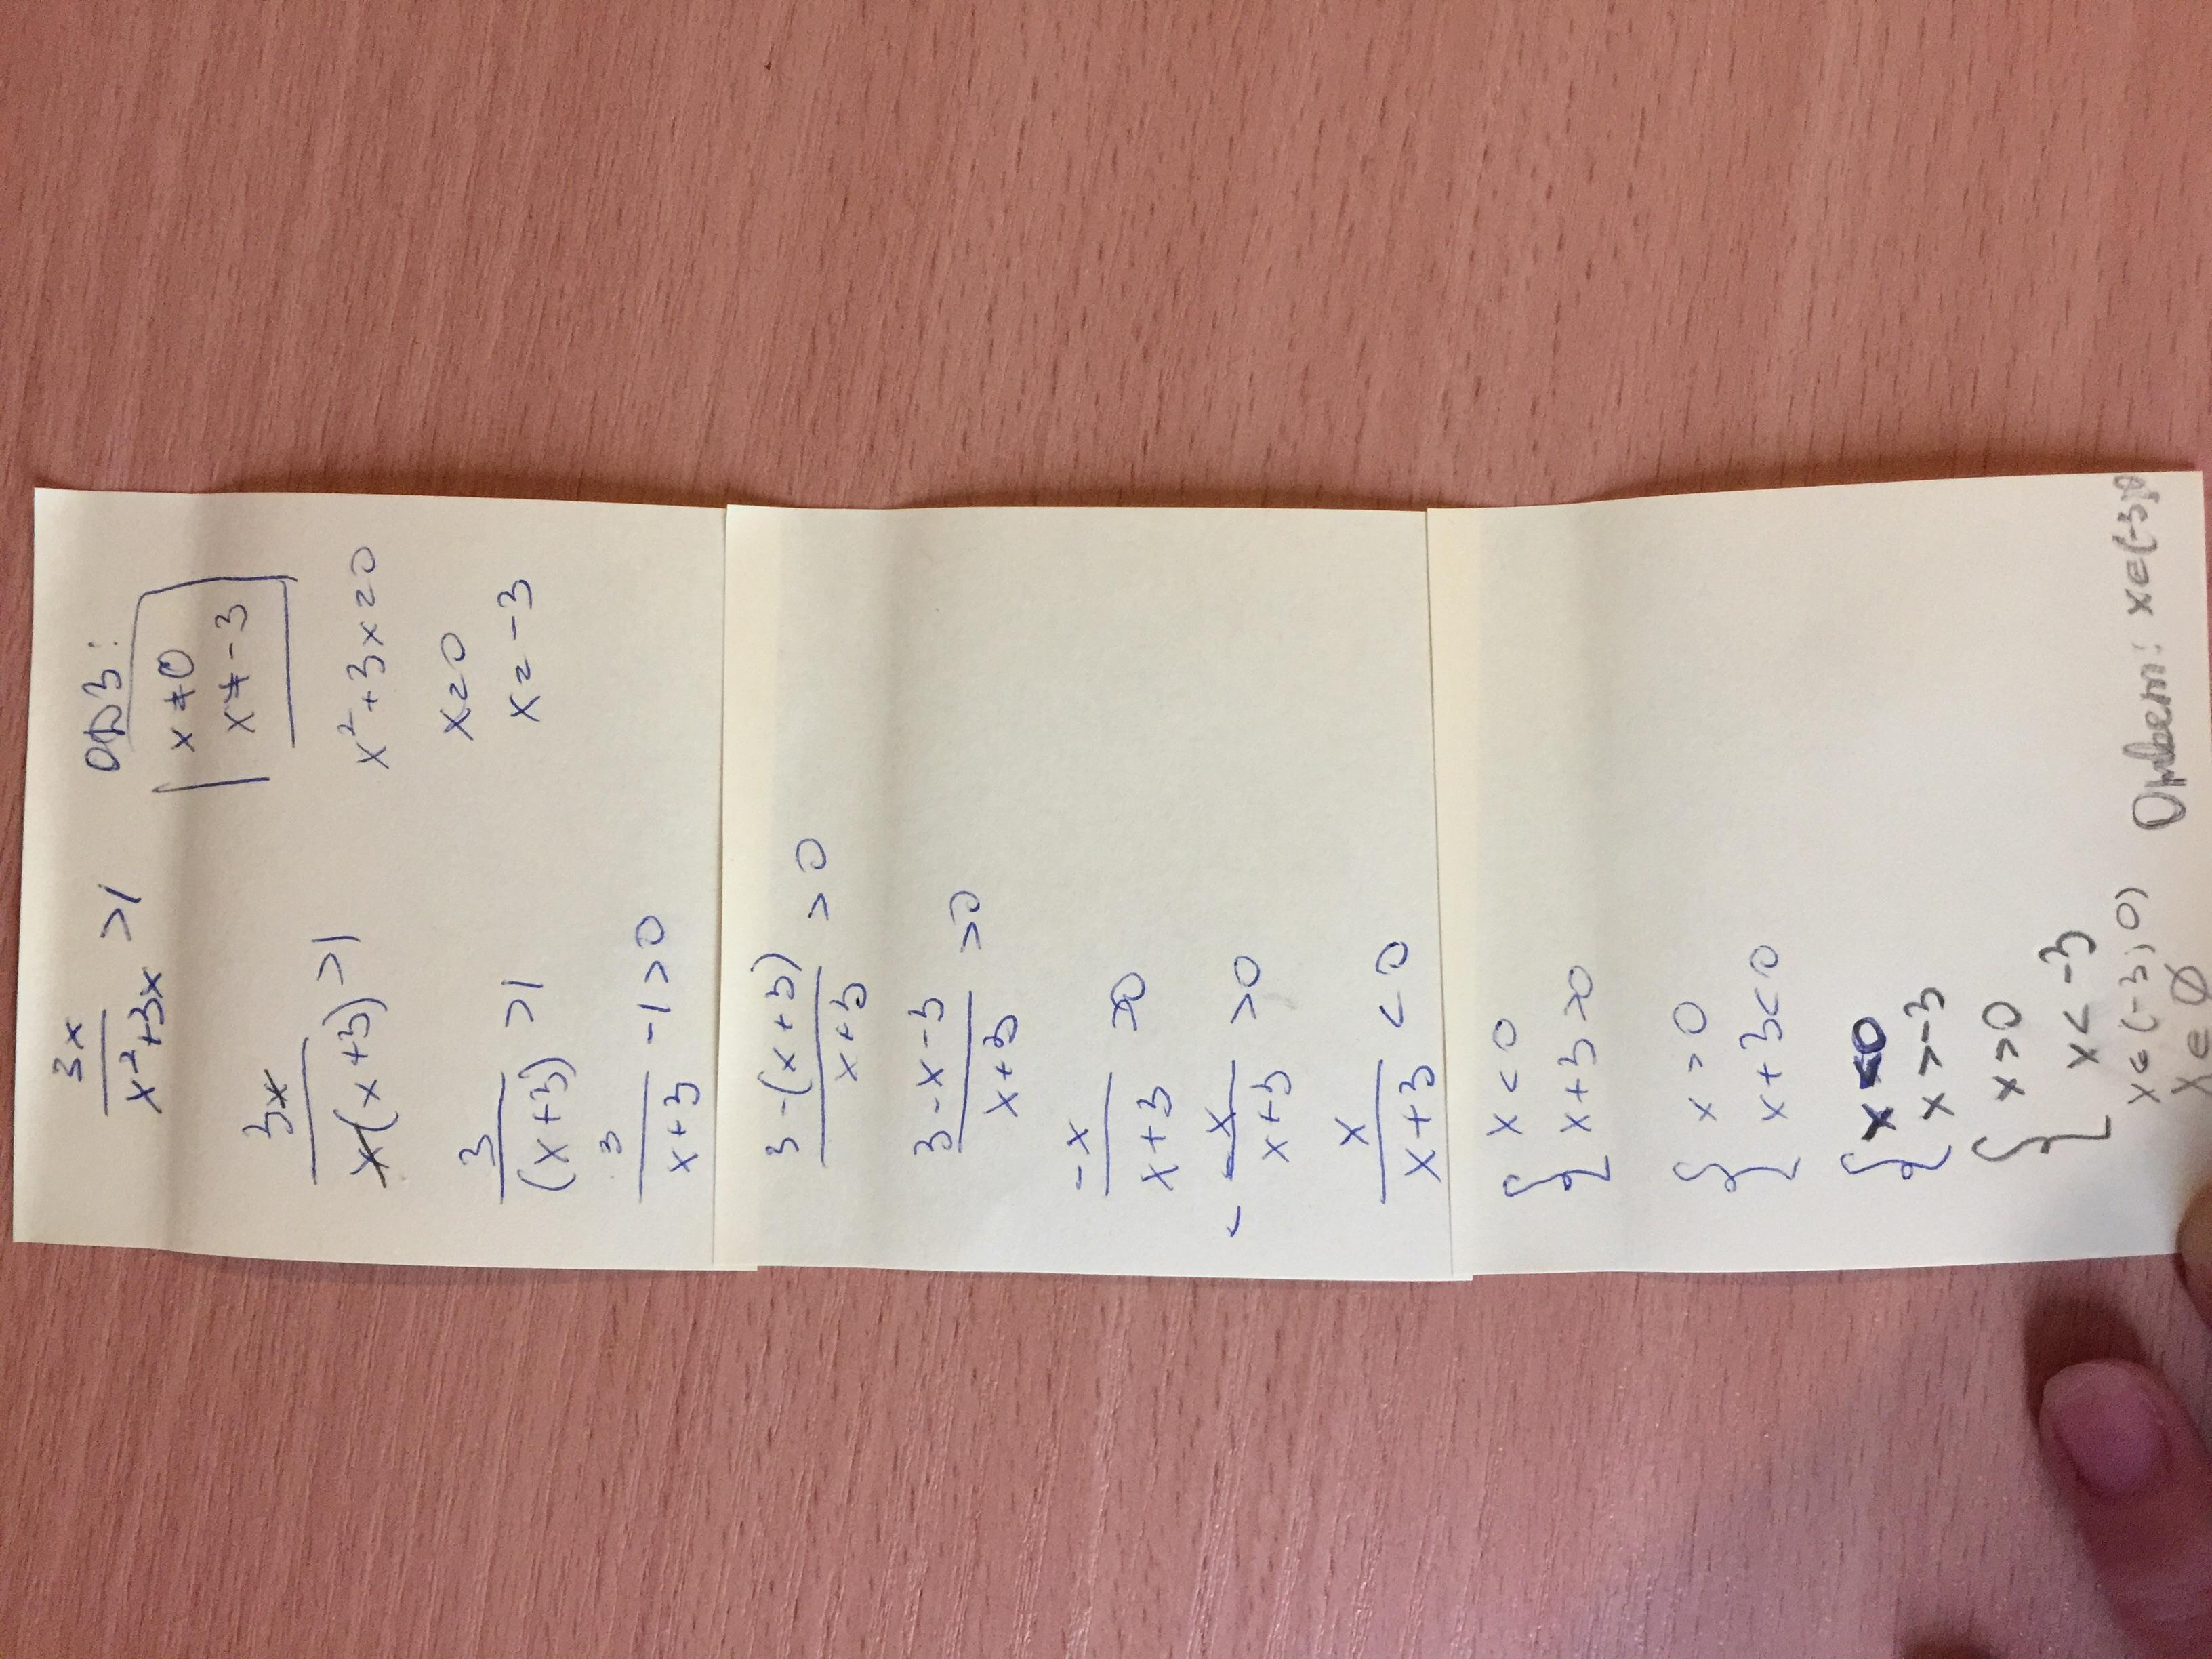 3x/(x²+3x) >1
ОДЗ:
x≠0
x≠-3
x²+3x=0
x=0
x=-3
3x/(x(x+3)) >1
3/(x+3) >1
3/(x+3) -1>0
(3-(x+3))/(x+3) >0
(3-x-3)/(x+3) >0
-x/(x+3) >0
-x/(x+3) >0
x/(x+3) <0
{x<0
x+3>0
{x>0
x+3<0
{x<0
x>-3
{x>0
x<-3
x∈(-3;0)
x∈∅
Ответ: x∈(-3;0